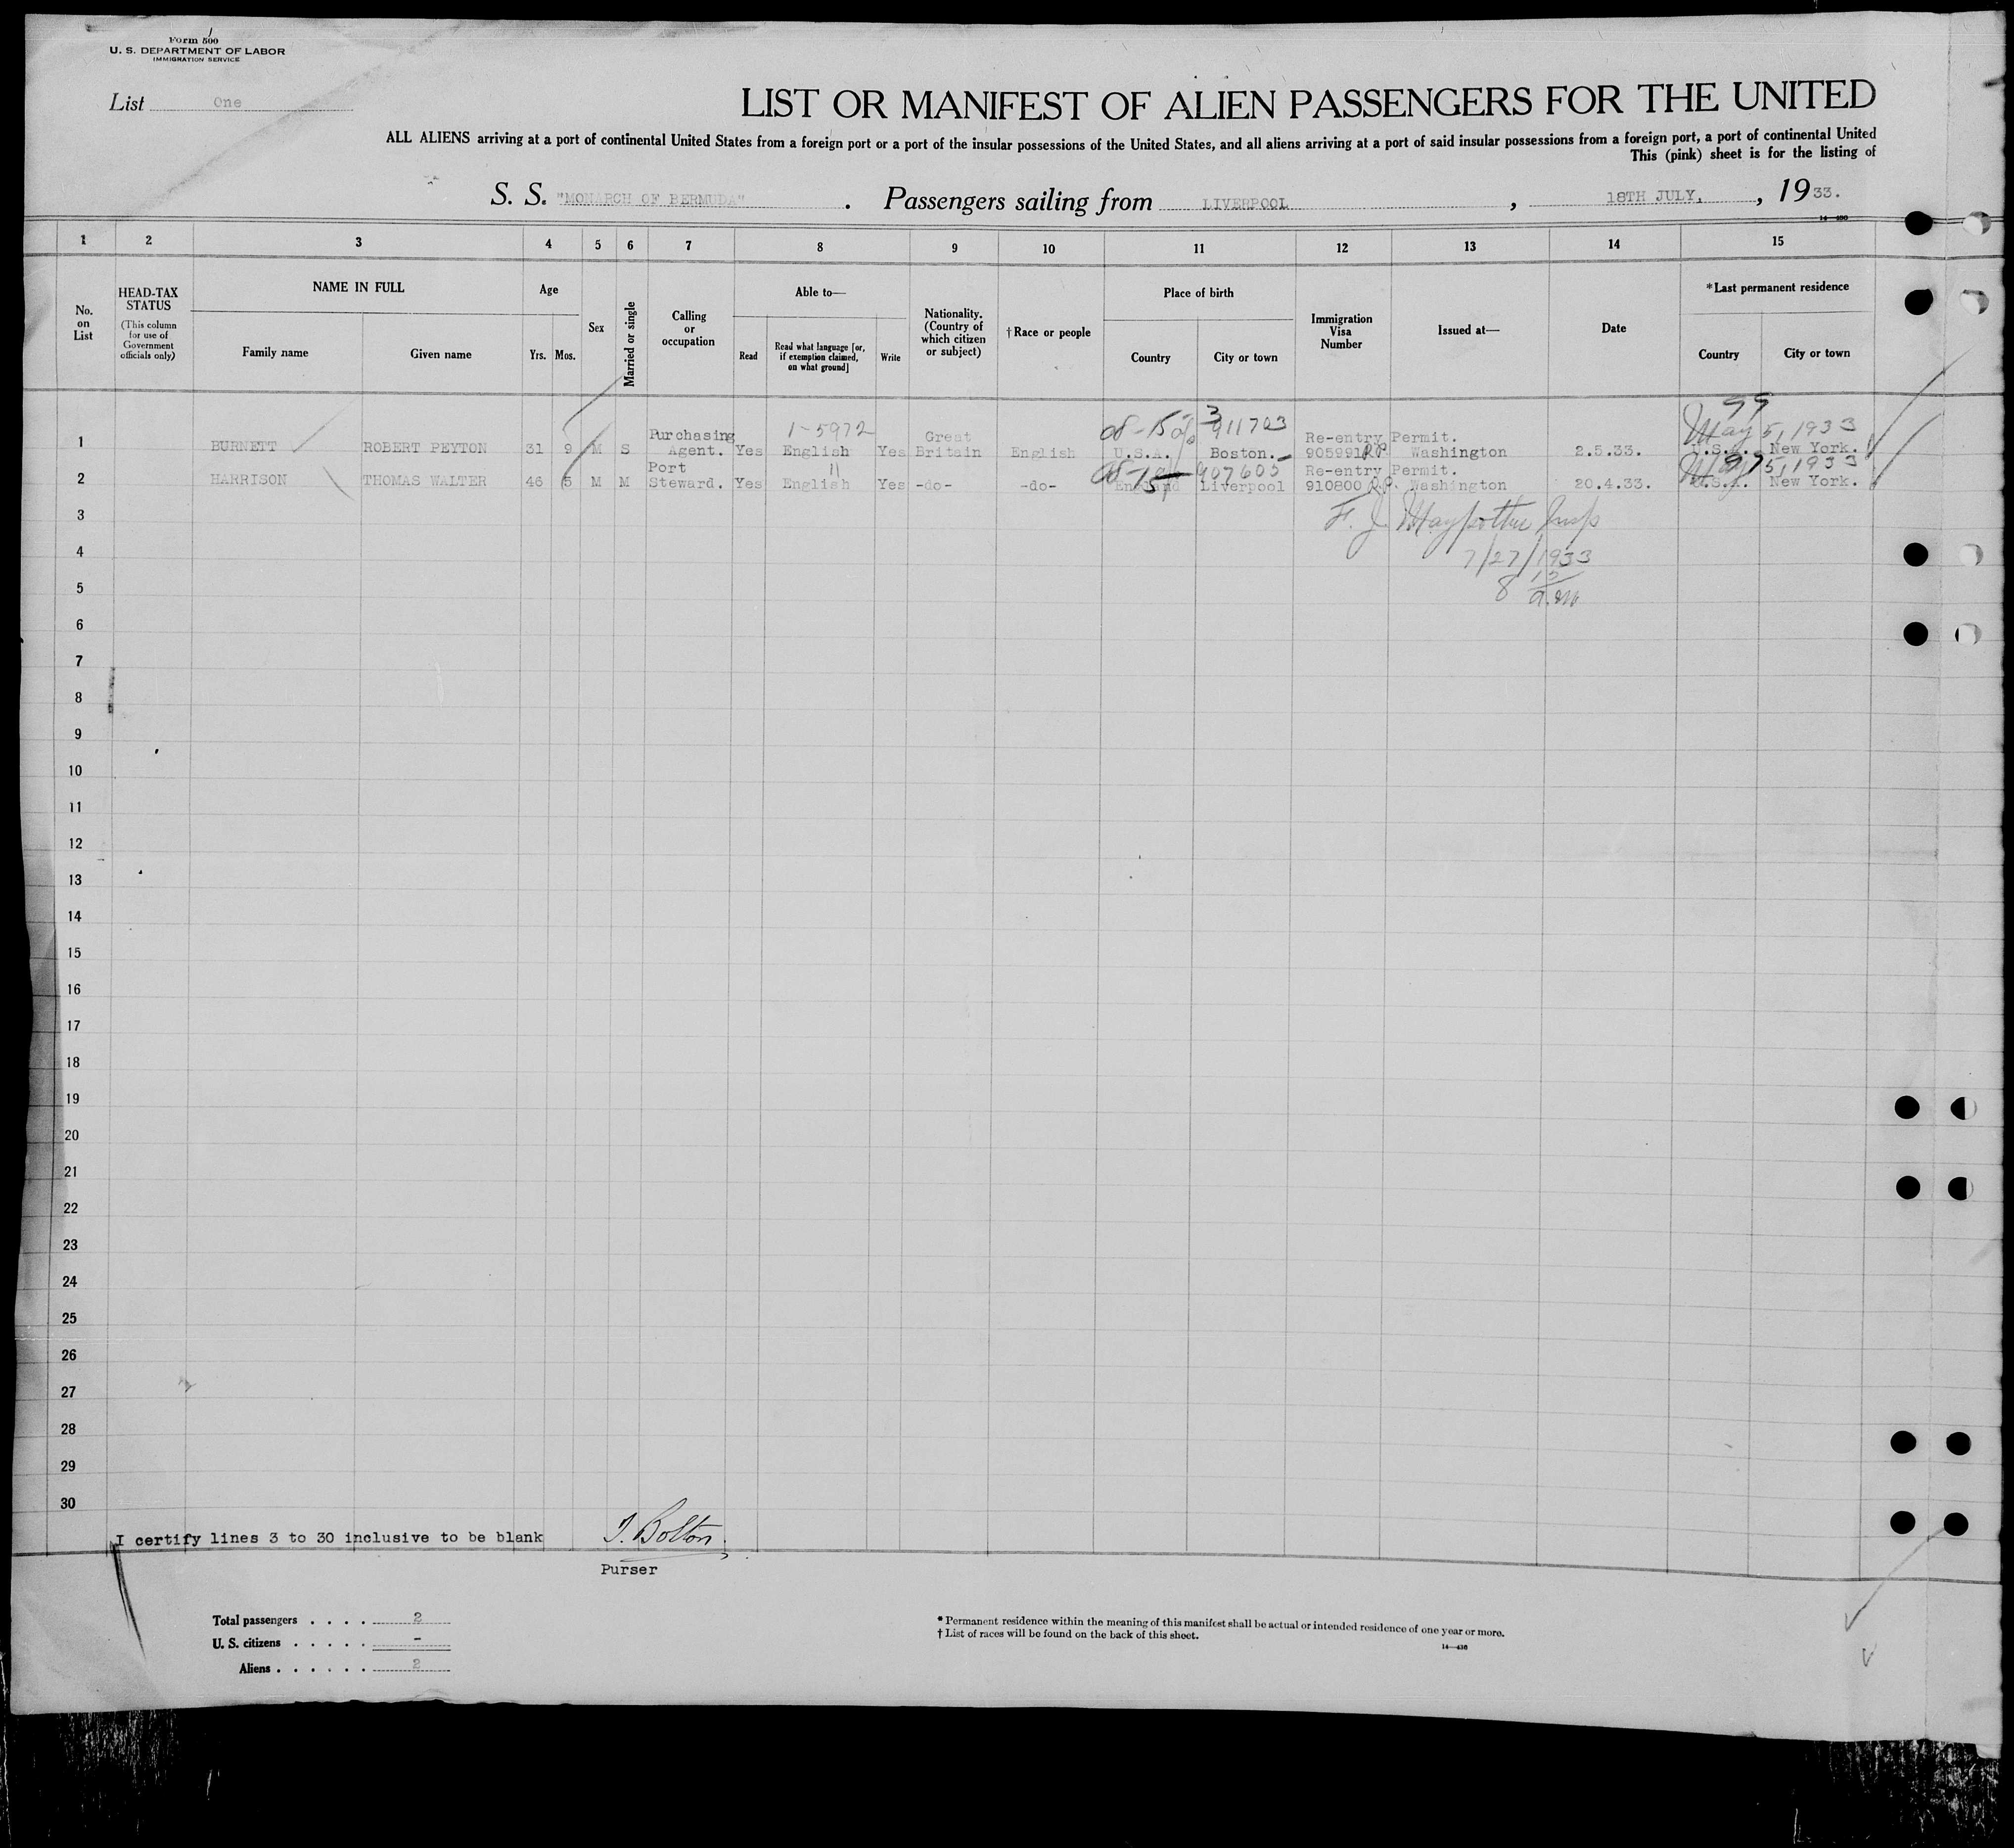 Form 500
U. S. DEPARTMENT OF LABOR
IMMIGRATION SERVICE
List One
LIST OR MANIFEST OF ALIEN PASSENGERS FOR THE UNITED
ALL ALIENS arriving at a port of continental United States from a foreign port or a port of the insular possessions of the United States, and all aliens arriving at a port of said insular possessions from a foreign port, a port of continental United
This (pink) sheet is for the listing of
S. S. "MONARCH OF BERMUDA" . Passengers sailing from LIVERPOOL , 18TH JULY, , 1933.
1 2 3 4 5 6 7 8 9 10 11 12 13 14 15
No. on List
HEAD-TAX STATUS
(This column for use of Government officials only)
NAME IN FULL
Family name
Given name
Age
Yrs. Mos.
Sex
Married or single
Calling or occupation
Able to—
Read
Read what language [or, if exemption claimed, on what ground]
Write
Nationality. (Country of which citizen or subject)
†Race or people
Place of birth
Country
City or town
Immigration Visa Number
Issued at—
Date
*Last permanent residence
Country
City or town
99
1-5972
911703
May 5, 1933
1 BURNETT ROBERT PEYTON 31 9 M S Purchasing Agent. Yes English Yes Great Britain English U.S.A. Boston. Re-entry Permit. 905991 Washington 2.5.33. U.S.A. New York.
907605
May 5, 1933
2 HARRISON THOMAS WALTER 46 5 M M Port Steward. Yes English Yes -do- -do- England Liverpool Re-entry Permit. 910800 Washington 20.4.33. U.S.A. New York.
3
F. J. Insp
4
7/27/1933
5
8 15 a.m
6
7
8
9
10
11
12
13
14
15
16
17
18
19
20
21
22
23
24
25
26
27
28
29
30
I certify lines 3 to 30 inclusive to be blank J. Bolton.
Purser
Total passengers . . . . 2
U. S. citizens . . . . . -
Aliens . . . . . . 2
* Permanent residence within the meaning of this manifest shall be actual or intended residence of one year or more.
† List of races will be found on the back of this sheet.